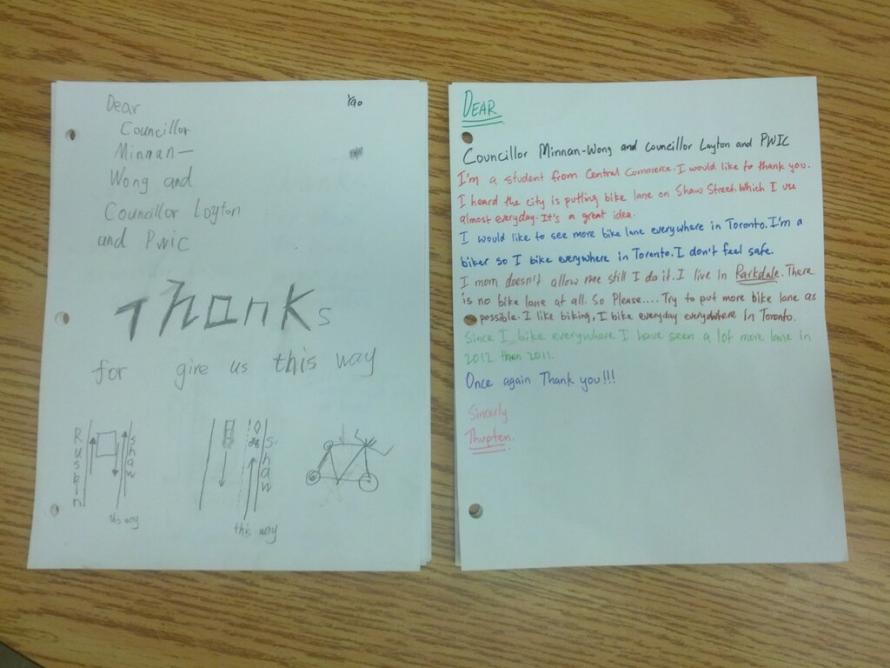 Dear
Councillor
Minnan-
Wong and
Councillor Layton
and PWIC
Thanks
for give us this way
Ruskin
Shaw
this way
Shaw
this way
DEAR
Councillor Minnan-Wong and Councillor Layton and PWIC
I'm a student from Central Commerce. I would like to thank you.
I heard the city is putting bike lane on Shaw Street. Which I use
almost everyday. It's a great idea.
I would like to see more bike lane everywhere in Toronto. I'm a
biker so I bike everywhere in Toronto. I don't feel safe.
I mom doesn't allow me still I do it. I live in Parkdale. There
is no bike lane at all. So Please.... Try to put more bike lane as
possible. I like biking. I bike everyday everywhere In Toronto.
Since I bike everywhere I have seen a lot more lane in
2012 then 2011.
Once again Thank you!!!
Sincerly
Thupten.